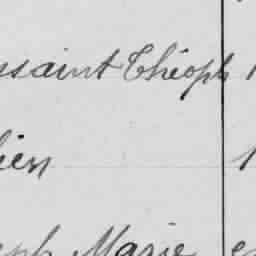 ssaint Théoph
ien
eph Marie